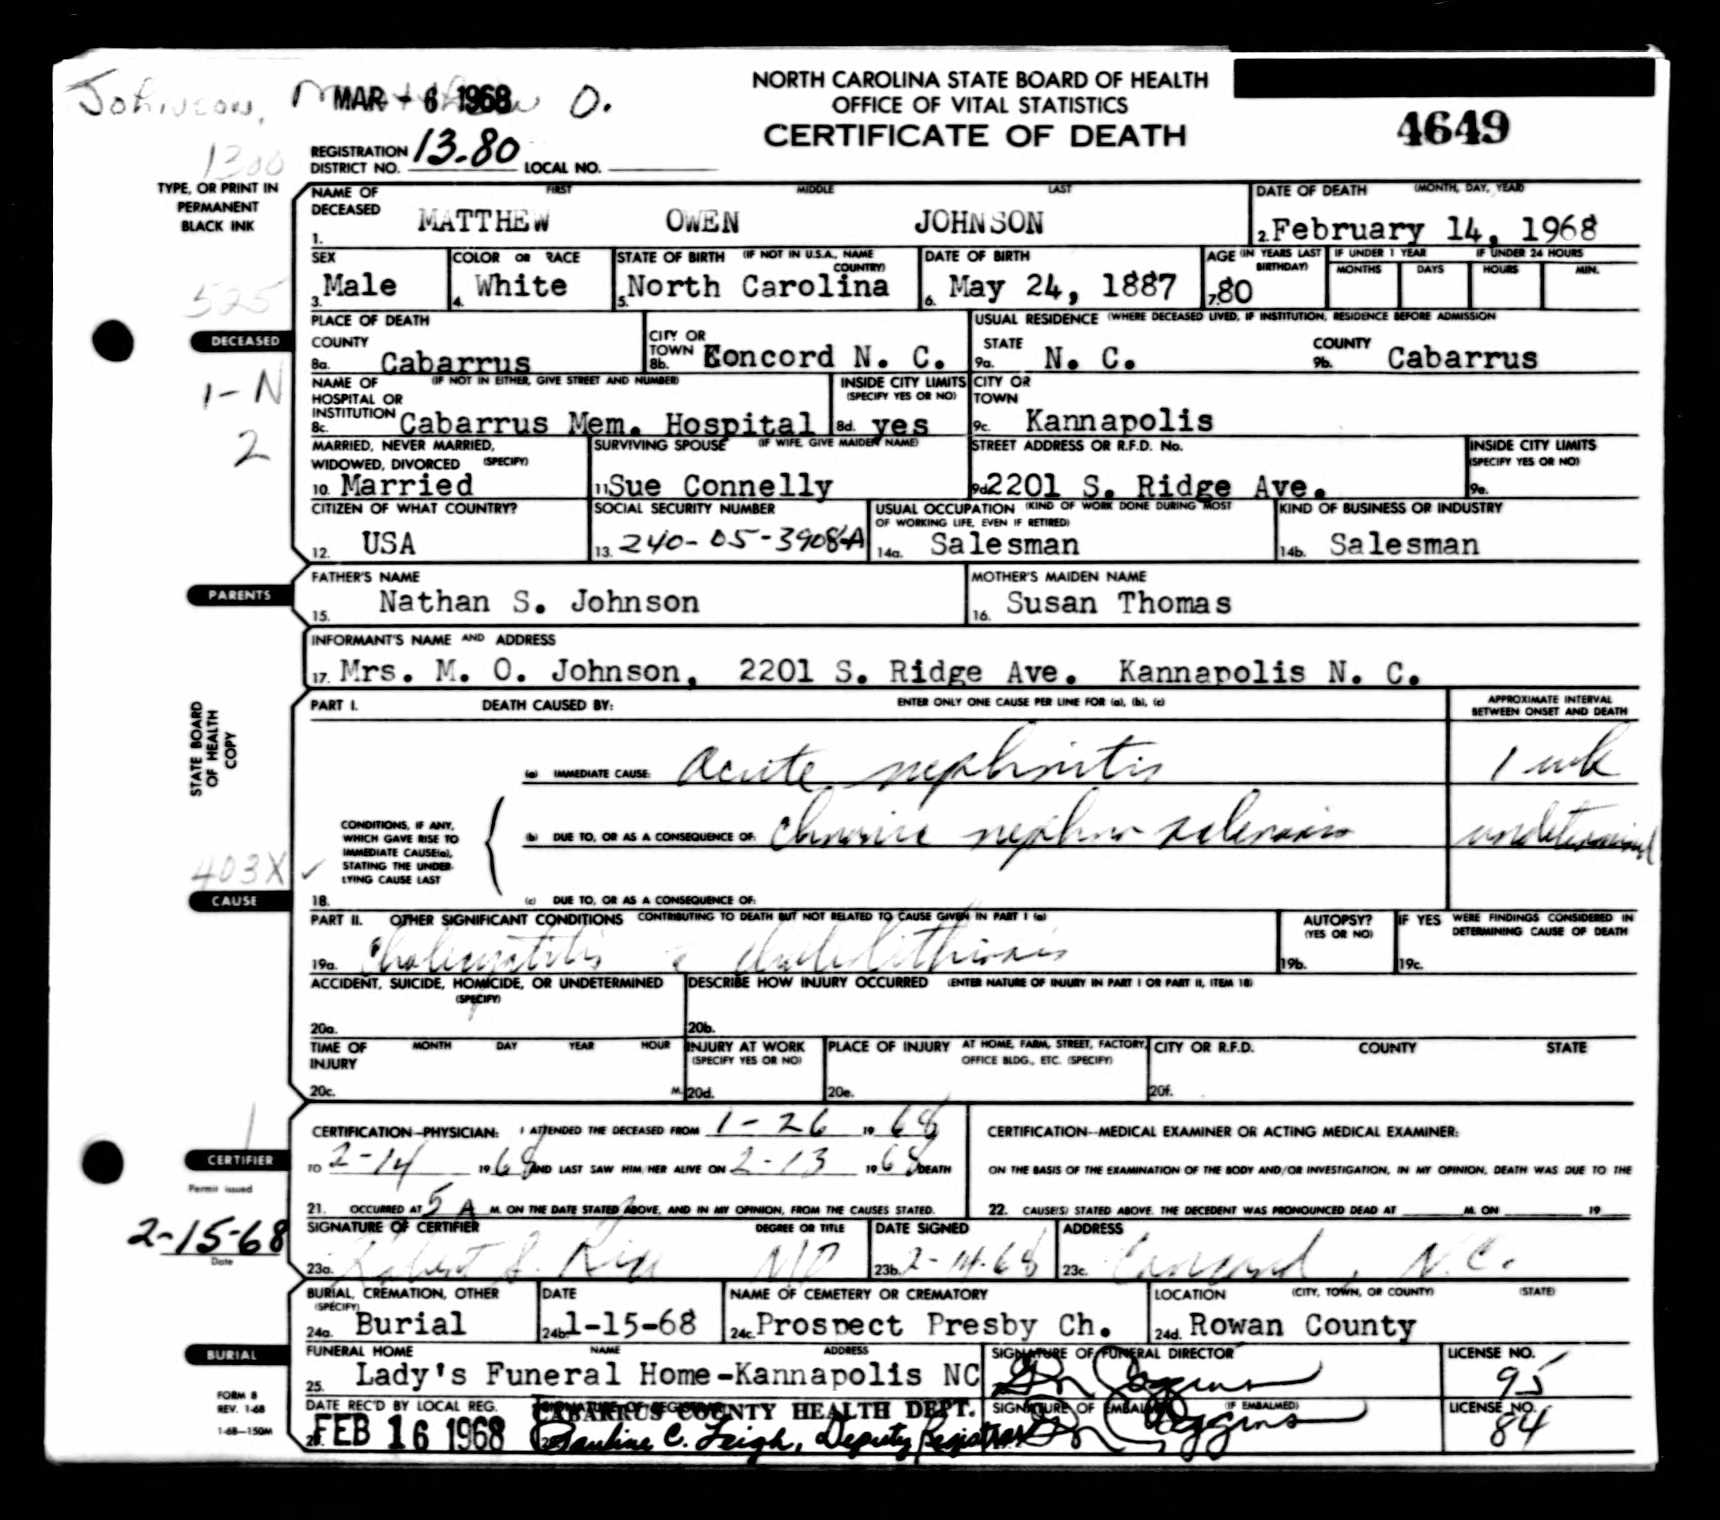 Johnson, Matthew O.
MAR - 6 1968
NORTH CAROLINA STATE BOARD OF HEALTH
OFFICE OF VITAL STATISTICS
CERTIFICATE OF DEATH
4649
1300
REGISTRATION DISTRICT NO. 13.80 LOCAL NO.
TYPE, OR PRINT IN
PERMANENT
BLACK INK
NAME OF DECEASED FIRST MIDDLE LAST
1. MATTHEW OWEN JOHNSON
DATE OF DEATH (MONTH, DAY, YEAR)
2. February 14, 1968
SEX
3. Male
COLOR OR RACE
4. White
STATE OF BIRTH (IF NOT IN U.S.A., NAME COUNTRY)
5. North Carolina
DATE OF BIRTH
6. May 24, 1887
AGE (IN YEARS LAST BIRTHDAY)
7. 80
IF UNDER 1 YEAR
MONTHS DAYS
IF UNDER 24 HOURS
HOURS MIN.
525
DECEASED
1-N
2
PLACE OF DEATH
COUNTY
8a. Cabarrus
CITY OR TOWN
8b. Concord N. C.
USUAL RESIDENCE (WHERE DECEASED LIVED, IF INSTITUTION, RESIDENCE BEFORE ADMISSION
STATE
9a. N. C.
COUNTY
9b. Cabarrus
NAME OF HOSPITAL OR INSTITUTION (IF NOT IN EITHER, GIVE STREET AND NUMBER)
8c. Cabarrus Mem. Hospital
INSIDE CITY LIMITS (SPECIFY YES OR NO)
8d. yes
CITY OR TOWN
9c. Kannapolis
MARRIED, NEVER MARRIED, WIDOWED, DIVORCED (SPECIFY)
10. Married
SURVIVING SPOUSE (IF WIFE, GIVE MAIDEN NAME)
11. Sue Connelly
STREET ADDRESS OR R.F.D. No.
9d. 2201 S. Ridge Ave.
INSIDE CITY LIMITS (SPECIFY YES OR NO)
9e.
CITIZEN OF WHAT COUNTRY?
12. USA
SOCIAL SECURITY NUMBER
13. 240-05-3908-A
USUAL OCCUPATION (KIND OF WORK DONE DURING MOST OF WORKING LIFE, EVEN IF RETIRED)
14a. Salesman
KIND OF BUSINESS OR INDUSTRY
14b. Salesman
PARENTS
FATHER'S NAME
15. Nathan S. Johnson
MOTHER'S MAIDEN NAME
16. Susan Thomas
INFORMANT'S NAME AND ADDRESS
17. Mrs. M. O. Johnson, 2201 S. Ridge Ave. Kannapolis N. C.
STATE BOARD
OF HEALTH
COPY
PART I. DEATH CAUSED BY: ENTER ONLY ONE CAUSE PER LINE FOR (a), (b), (c)
APPROXIMATE INTERVAL
BETWEEN ONSET AND DEATH
(a) IMMEDIATE CAUSE: acute nephritis 1 wk
CONDITIONS, IF ANY,
WHICH GAVE RISE TO
IMMEDIATE CAUSE(a),
STATING THE UNDER-
LYING CAUSE LAST
(b) DUE TO, OR AS A CONSEQUENCE OF: chronic nephro sclerosis undetermined
403X ✓
CAUSE
18. (c) DUE TO, OR AS A CONSEQUENCE OF:
PART II. OTHER SIGNIFICANT CONDITIONS CONTRIBUTING TO DEATH BUT NOT RELATED TO CAUSE GIVEN IN PART I (a)
19a. Cholecystitis c cholelithiasis
AUTOPSY? (YES OR NO)
19b.
IF YES WERE FINDINGS CONSIDERED IN DETERMINING CAUSE OF DEATH
19c.
ACCIDENT, SUICIDE, HOMICIDE, OR UNDETERMINED (SPECIFY)
20a.
DESCRIBE HOW INJURY OCCURRED (ENTER NATURE OF INJURY IN PART I OR PART II, ITEM 18)
20b.
TIME OF INJURY MONTH DAY YEAR HOUR
20c. M.
INJURY AT WORK (SPECIFY YES OR NO)
20d.
PLACE OF INJURY AT HOME, FARM, STREET, FACTORY, OFFICE BLDG., ETC. (SPECIFY)
20e.
CITY OR R.F.D. COUNTY STATE
20f.
CERTIFIER
Permit issued
2-15-68
Date
CERTIFICATION—PHYSICIAN: I ATTENDED THE DECEASED FROM 1-26 19 68
TO 2-14 19 68 AND LAST SAW HIM/HER ALIVE ON 2-13 19 68 DEATH
21. OCCURRED AT 5 A M. ON THE DATE STATED ABOVE, AND IN MY OPINION, FROM THE CAUSES STATED.
CERTIFICATION—MEDICAL EXAMINER OR ACTING MEDICAL EXAMINER:
ON THE BASIS OF THE EXAMINATION OF THE BODY AND/OR INVESTIGATION, IN MY OPINION, DEATH WAS DUE TO THE
22. CAUSE(S) STATED ABOVE. THE DECEDENT WAS PRONOUNCED DEAD AT M. ON 19
SIGNATURE OF CERTIFIER DEGREE OR TITLE
23a. Robert S. MD
DATE SIGNED
23b. 2-14-68
ADDRESS
23c. Concord, N.C.
BURIAL
BURIAL, CREMATION, OTHER (SPECIFY)
24a. Burial
DATE
24b. 1-15-68
NAME OF CEMETERY OR CREMATORY
24c. Prospect Presby Ch.
LOCATION (CITY, TOWN, OR COUNTY) (STATE)
24d. Rowan County
FUNERAL HOME NAME ADDRESS
25. Lady's Funeral Home-Kannapolis NC
SIGNATURE OF FUNERAL DIRECTOR
LICENSE NO.
95
FORM 8
REV. 1-68
1-68—150M
DATE REC'D BY LOCAL REG.
FEB 16 1968
CABARRUS COUNTY HEALTH DEPT.
Pauline C. Leigh, Deputy Registrar
SIGNATURE OF EMBALMER (IF EMBALMED)
LICENSE NO.
84